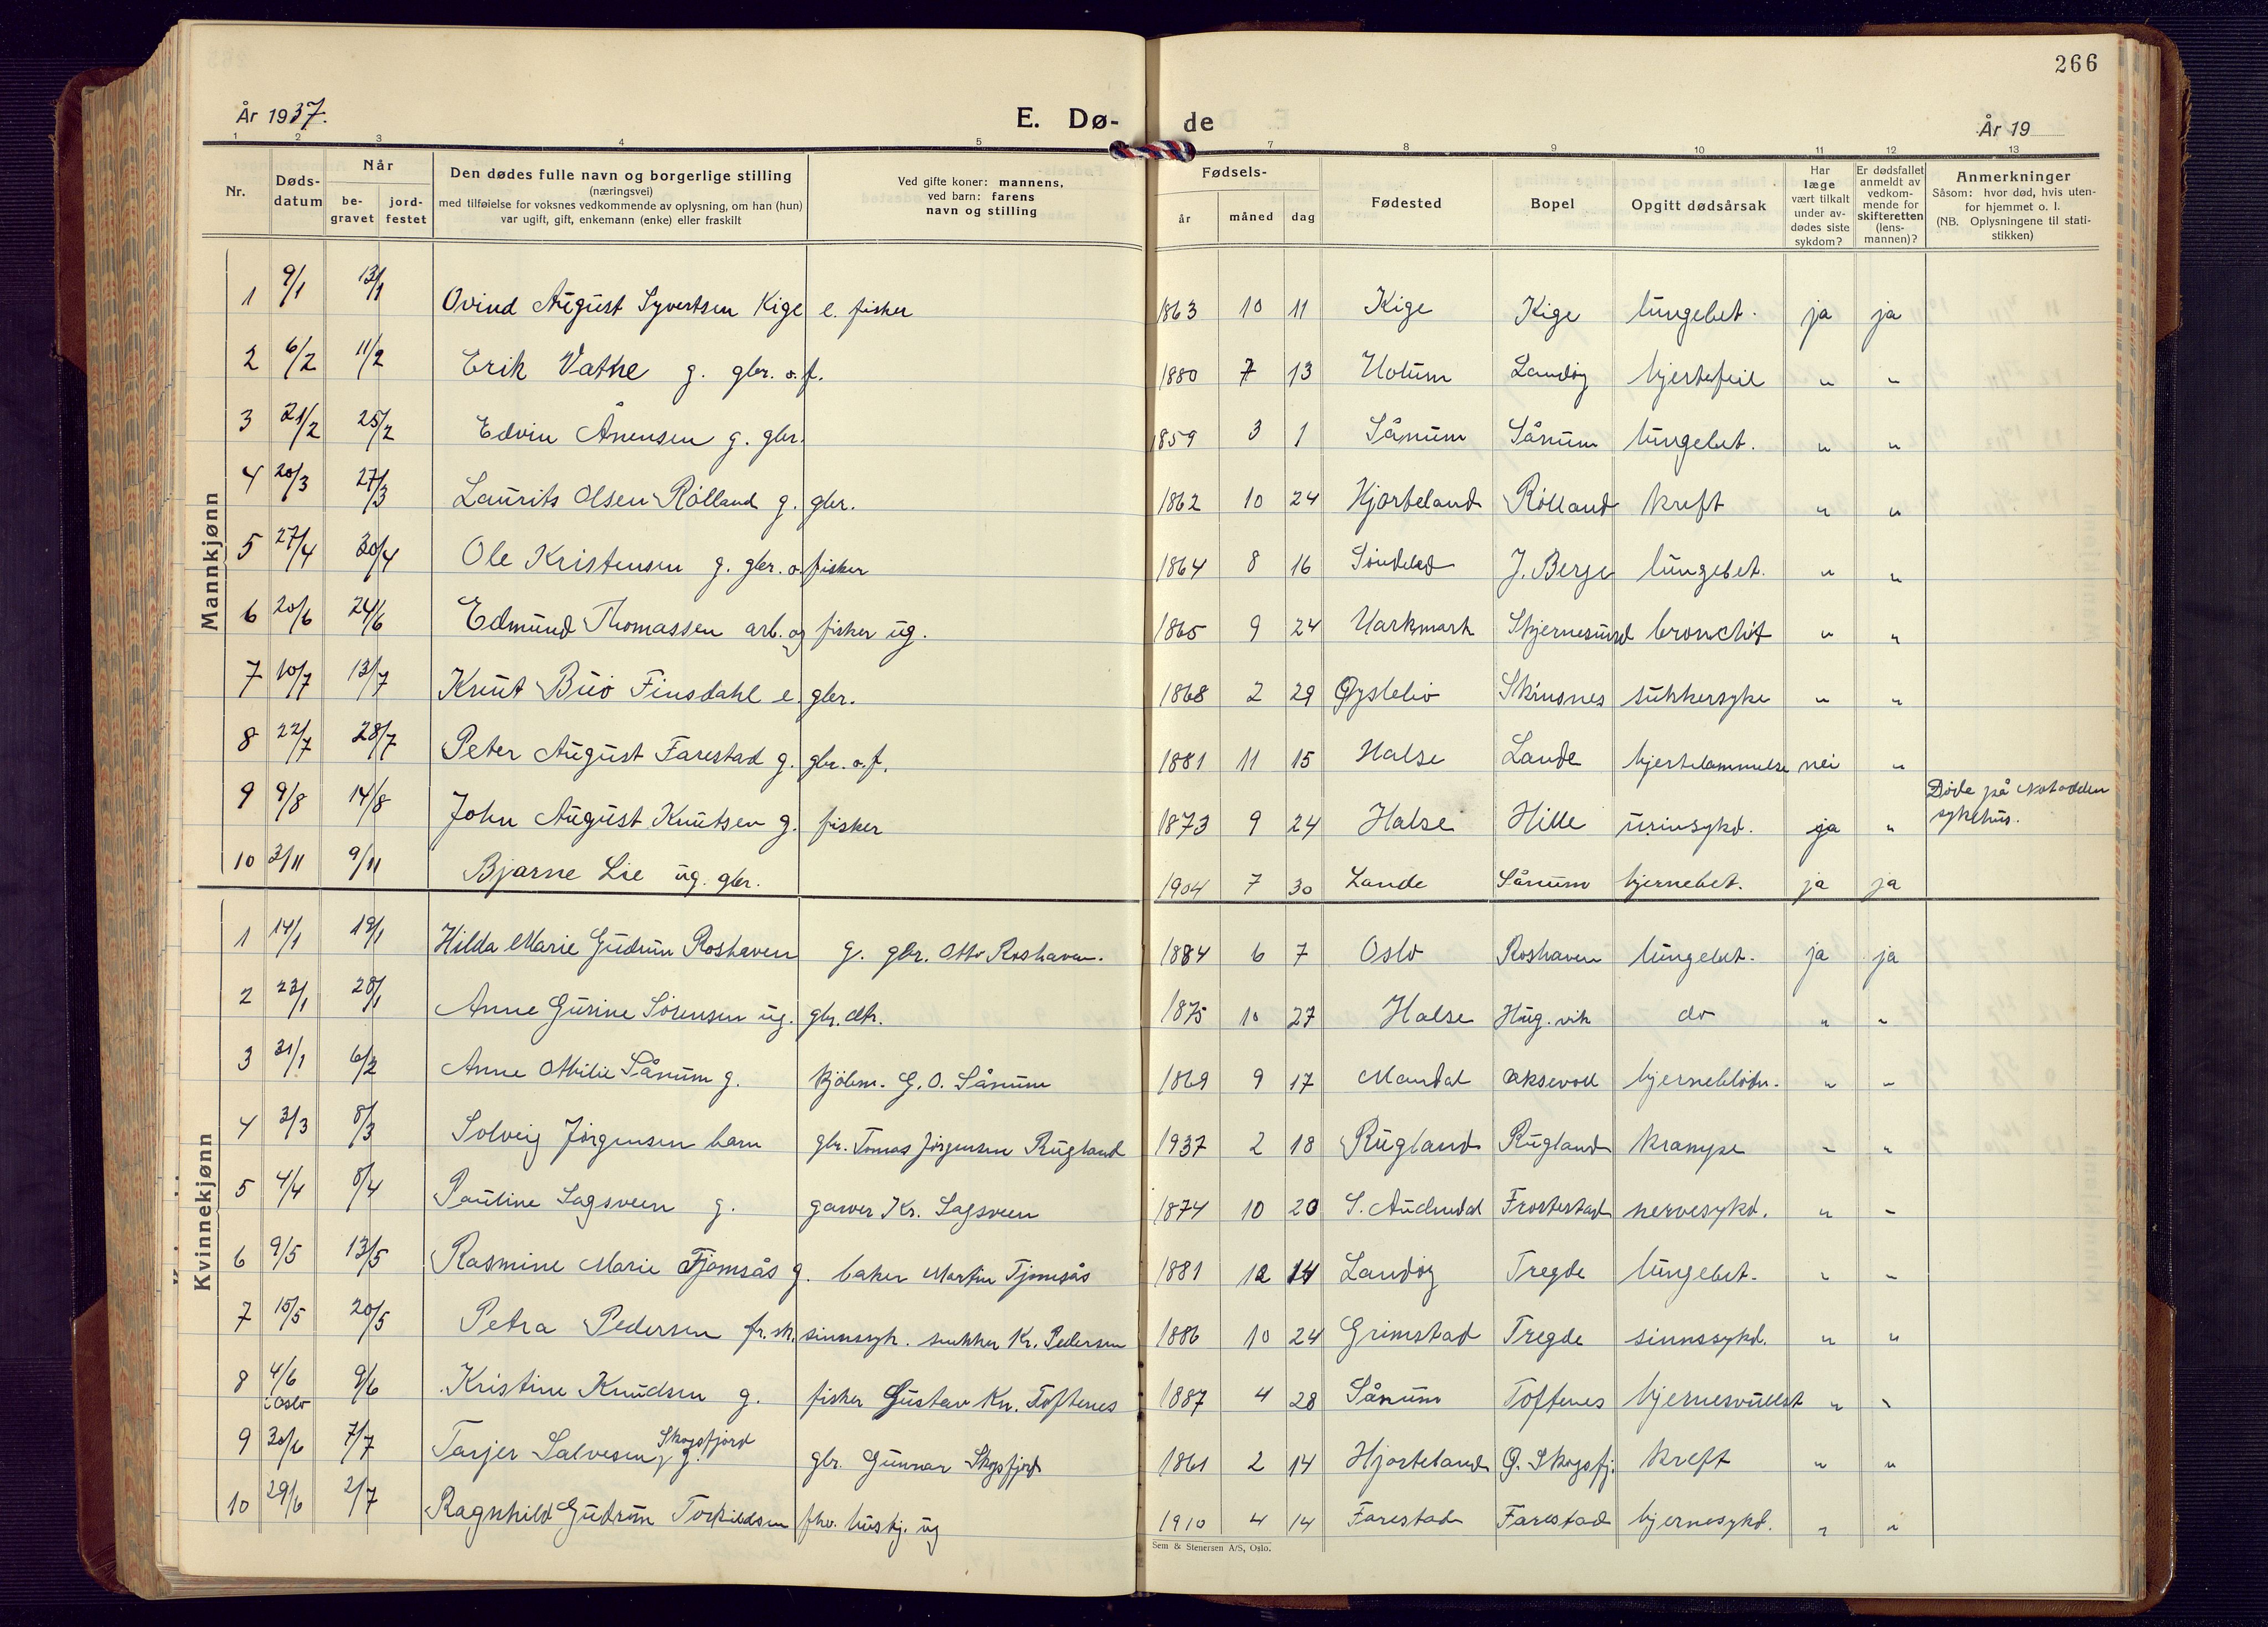 266
År 1937.
E. Dø- de
År 19
1 2 3 4 5 7 8 9 10 11 12 13
Nr.
Døds-
datum
Når
be-
gravet
jord-
festet
Den dødes fulle navn og borgerlige stilling
(næringsvei)
med tilføielse for voksnes vedkommende av oplysning, om han (hun)
var ugift, gift, enkemann (enke) eller fraskilt
Ved gifte koner: mannens,
ved barn: farens
navn og stilling
Fødsels-
år måned dag
Fødested
Bopel
Opgitt dødsårsak
Har
læge
vært tilkalt
under av-
dødes siste
sykdom?
Er dødsfallet
anmeldt av
vedkom-
mende for
skifteretten
(lens-
mannen)?
Anmerkninger
Såsom: hvor død, hvis uten-
for hjemmet o. l.
(NB. Oplysningene til stati-
stikken)
Mannkjønn
1 9/1 13/1 Ovind August Syvertsen Kige e. fisker 1863 10 11 Kige Kige lungebet. ja ja
2 6/2 11/2 Erik Vatne g. gbr. o. f. 1880 7 13 Holum Landøy hjertefeil " "
3 21/2 25/2 Edvin Ånensen g. gbr. 1859 3 1 Sånum Sånum lungebet. " "
4 20/3 27/3 Laurits Olsen Rölland g. gbr. 1862 10 24 Hjorteland Rölland kreft " "
5 27/4 30/4 Ole Kristensen g. gbr. o. fisker 1864 8 16 Søndeled J. Berge lungebet. " "
6 20/6 24/6 Edmund Thomassen arb. og fisker ug. 1865 9 24 Harkmark Skjernesund bronchit " "
7 10/7 13/7 Knut Buø Finsdahl e. gbr. 1868 2 29 Øyslebø Skinsnes sukkersyke " "
8 22/7 28/7 Peter August Farestad g. gbr. o. f. 1881 11 15 Halse Lande hjertelammelse nei "
9 9/8 14/8 John August Knutsen g. fisker 1873 9 24 Halse Hille urinsykd. ja " Døde på Notodden
sykehus.
10 3/11 9/11 Bjarne Lie ug. gbr. 1904 7 30 Lande Sånum hjernebet. ja ja
Kvinnekjønn
1 14/1 19/1 Hilda Marie Gudrun Roshaven g. gbr. Otto Roshaven. 1884 6 7 Oslo Roshaven lungebet. ja ja
2 23/1 28/1 Anne Gurine Sörensen ug. gbr. dtr. 1875 10 27 Halse Hug. vik do " "
3 31/1 6/2 Anne Otilie Sånum g. kjöbm. G. O. Sånum 1869 9 17 Mandal Oksevoll hjerneblödn. " "
4 3/3 8/3 Solveig Jörgensen barn gbr. Tomas Jörgensen Rugland 1937 2 18 Rugland Rugland krampe " "
5 4/4 8/4 Pauline Sagsveen g. garver Kr. Sagsveen 1874 10 20 S. Audnedal Frostestad nervesykd. " "
6 9/5 13/5 Rasmine Marie Tjomsås g. baker Martin Tjomsås 1881 12 14 Landøy Tregde lungebet. " "
7 15/5 20/5 Petra Pedersen fr. sk. sinnssyk. snekker Kr. Pedersen 1886 10 24 Grimstad Tregde sinnssykd. " "
8 4/6 9/6 Kristine Knudsen g. fisker Gustav Kn. Toftenes 1887 4 28 Sånum Toftenes hjernesvullst " "
i Oslo
9 30/6 7/7 Tarjer Salvesen Skogsfjord g. gbr. Gunnar Skogsfjord 1861 2 14 Hjorteland Ø. Skogsfj. kreft " "
10 29/6 2/7 Ragnhild Gudrun Torkildsen fhv. hushj. ug 1910 4 14 Farestad Farestad hjernesykd. " "
Sem & Stenersen A/S, Oslo.